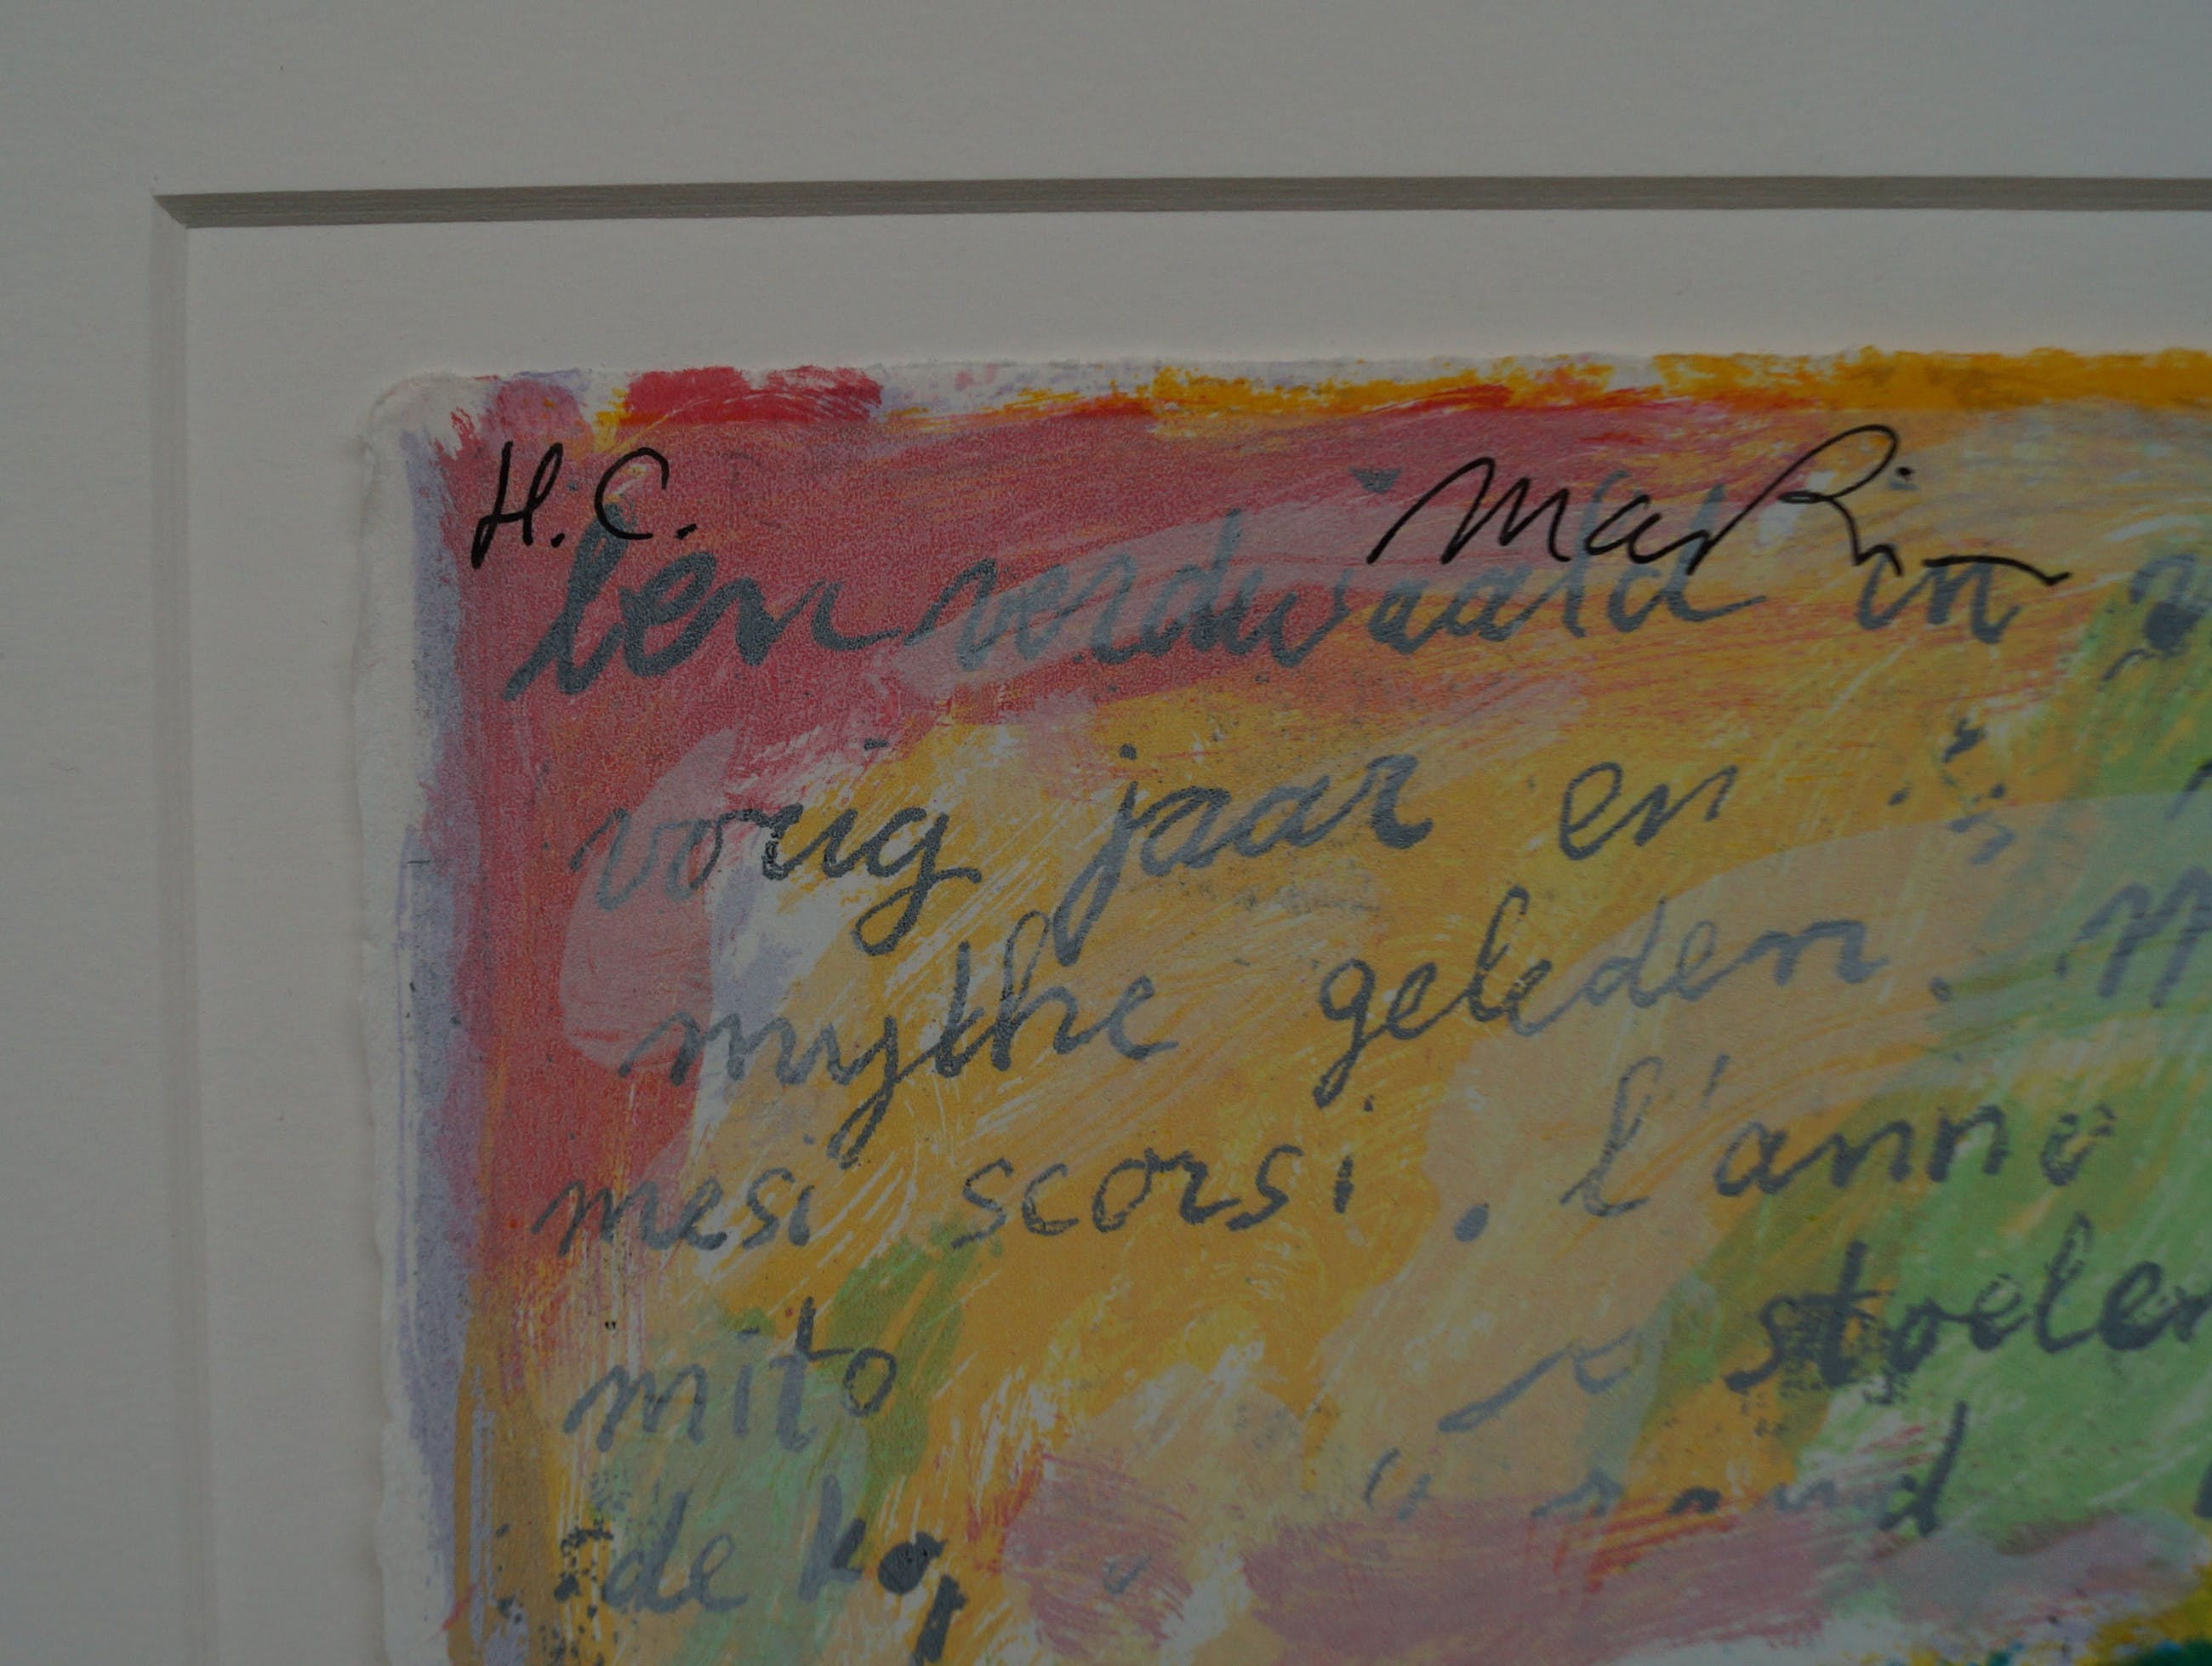 H.C. MaRin
ben verdwaald in
vorig jaar en
mythe geleden.
mesi scorsi. l'anno
mito stoelen
de